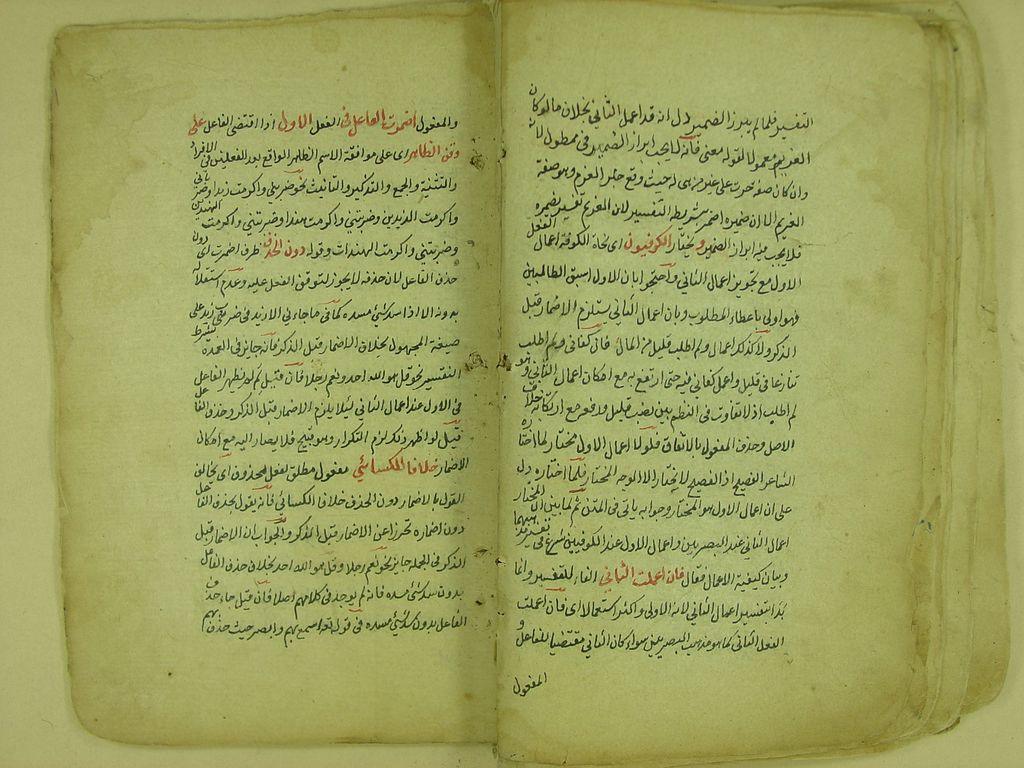 التفسير فلما لم يبرز الضمير دل انه قد اعمل الثاني بخلاف ما لو كان
الغريم معمولا لقوله معنى فانه لا يجب ابراز الضمير في ممطول لانه
وان كان صفة جرت على غير من هي له حيث وقع خبر الغريم وهو صفة
الغريم الا ان ضميره اضمر شريطة التفسير لان الغريم تفسير لضميره
فلا يجب فيه ابراز الضمير ويختار الكوفيون اى نحاة الكوفة اعمال الفعل
الاول مع تجويز اعمال الثاني واحتجوا بان الاول اسبق الطالبين
فهو اولى باعطاء المطلوب وبان اعمال الثاني يستلزم الاضمار قبل
الذكر ولا كذلك اعمال ولم اطلب قليل من المال فان كفاني ولم اطلب
تنازعا في قليل واعمل كفاني فيه حتى ارتفع به مع امكان اعمال الثاني وهو
لم اطلب اذ لا تفاوت في النظم بين نصب قليل ورفعه مع ارتكابه خلاف
الاصل وحذف المفعول بالاتفاق فلولا اعمال الاول مختار لما اختاره
الشاعر الفصيح اذ الفصيح لا يختار الا الوجه المختار فلما اختاره دل
على ان اعمال الاول هو المختار وجوابه يأتي في المتن ثم لما بين ان المختار
اعمال الثاني عند البصريين واعمال الاول عند الكوفيين شرع في تقسيمهما
وبيان كيفية الاعمال فقال فان اعملت الثاني الفاء للتفسير وانما
بدأ بتفسير اعمال الثاني لانه الاولى واكثر استعمالا اى فان اعملت
الفعل الثاني كما هو مذهب البصريين سواء كان الثاني مقتضيا للفاعل و
المفعول
والمفعول اضمرت الفاعل في الفعل الاول اذا اقتضى الفاعل على
وفق الظاهر اى على موافقة الاسم الظاهر الواقع بعد الفعلين في الافراد
والتثنية والجمع والتذكير والتأنيث نحو ضربني واكرمت زيدا وضرباني
واكرمت الزيدين وضربتني واكرمت هندا وضربتاني واكرمت الهندين
وضربنني واكرمت الهندات وقوله دون الحذف ظرف اضمرت اى دون
حذف الفاعل لان حذفه لا يجوز لتوقف الفعل عليه وعدم استقلاله
بدونه الا اذا سد شئ مسده كما في ما جاءني الا زيد في ضرب زيد على
صيغة المجهول بخلاف الاضمار قبل الذكر فانه جايز في العمدة بشرط
التفسير نحو قل هو الله احد ونعم رجلا فان قيل لم لم يظهر الفاعل
في الاول عند اعمال الثاني لئلا يلزم الاضمار قبل الذكر وحذف الفاعل
قيل لو اظهر ذكر لزم التكرار وهو قبيح فلا يصار اليه مع امكان
الاضمار خلافا للكسائي مفعول مطلق لفعل محذوف اى يخالف
القول بالاضمار دون الحذف خلافا للكسائي فانه يقول بحذف الفاعل
دون اضماره تحرزا عن الاضمار قبل الذكر والجواب ان الاضمار قبل
الذكر في الجملة جايز نحو نعم رجلا وقل هو الله احد بخلاف حذف الفاعل
بدون سد شئ مسده فانه لم يوجد في كلامهم اصلا فان قيل جاء حذف
الفاعل بدون سد شئ مسده في قوله تعالى اسمع بهم وابصر حيث حذف بهم